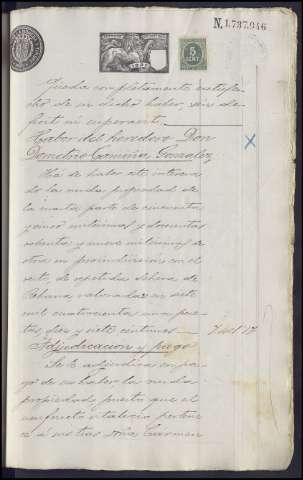 N.1.737.946
5
CENT
Queda completamente satisfe
cho de su dicho haber, sin dé
ficit ni superavit.
Haber del heredero Don
Demetrio Carmona González
Ha de haber este interesa
do la nuda propiedad de
la cuarta parte de cincuenta
y cinco enteros y doscientas
setenta y nueve milésimas de
otra en proindivision en el
resto, de repetida dehesa de
valoradas en siete
mil cuatrocientas una pese
tas diez y siete céntimos 7401'17
Adjudicacion y pago
Se le adjudica en pa
go de su haber la nuda
propiedad puesto que el
usufructo vitalicio pertene
ce á su tia Doña Carmen